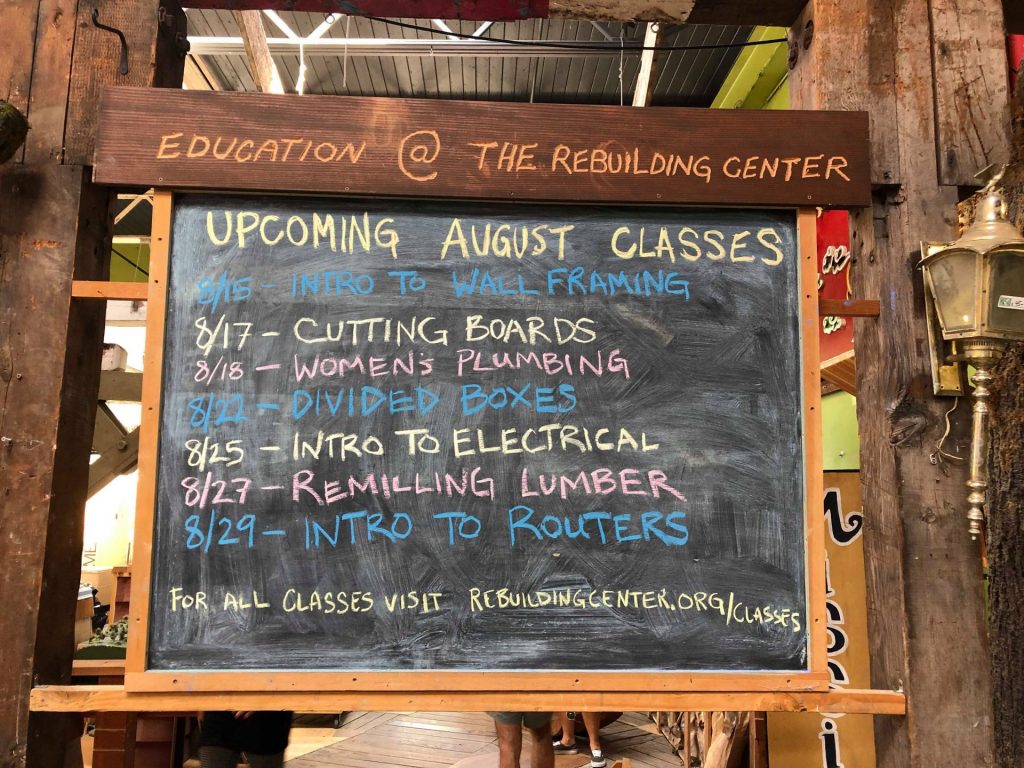 EDUCATION @ THE REBUILDING CENTER
UPCOMING AUGUST CLASSES
8/15 - INTRO TO WALL FRAMING
8/17 - CUTTING BOARDS
8/18 - WOMEN'S PLUMBING
8/22 - DIVIDED BOXES
8/25 - INTRO TO ELECTRICAL
8/27 - REMILLING LUMBER
8/29 - INTRO TO ROUTERS
FOR ALL CLASSES VISIT REBUILDINGCENTER.ORG/CLASSES